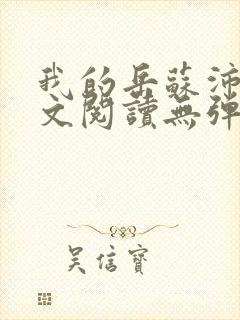 我的岳蘇沛
文閱讀無彈
吳信寶